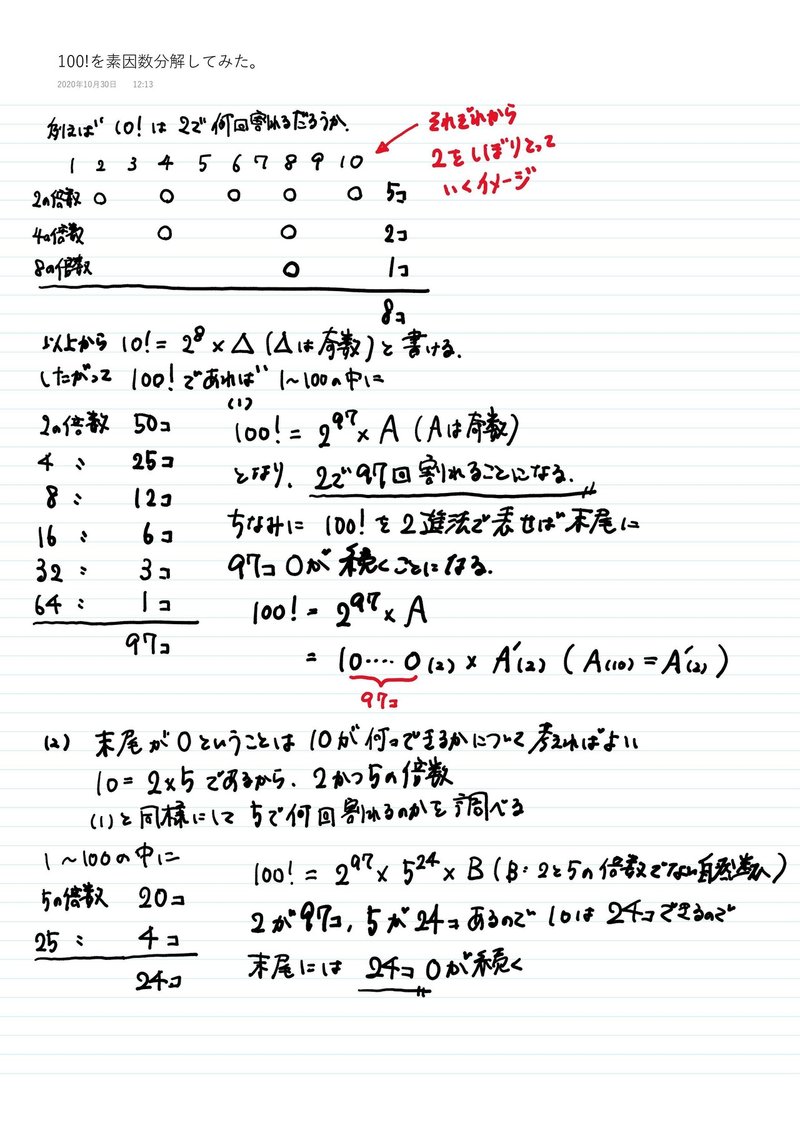 100!を素因数分解してみた。
2020年10月30日 12:13
例えば 10! は 2で何回割れるだろうか.
それぞれから
2をしぼりとって
いくイメージ
1 2 3 4 5 6 7 8 9 10
2の倍数 ○ ○ ○ ○ ○ 5コ
4の倍数 ○ ○ 2コ
8の倍数 ○ 1コ
8コ
以上から 10! = 2^8 × △ (△は奇数) と書ける.
したがって 100! であれば 1~100の中に
2の倍数 50コ
4 〃 25コ
8 〃 12コ
16 〃 6コ
32 〃 3コ
64 〃 1コ
97コ
(1)
100! = 2^97 × A (Aは奇数)
となり、2で97回割れることになる.
ちなみに 100! を 2進法で表せば 末尾に
97コ 0が続くことになる.
100! = 2^97 × A
= 10‥‥0(2) × A'(2) ( A(10) = A'(2) )
97コ
(2) 末尾が0ということは 10が何コできるかについて考えればよい
10 = 2×5 であるから、2かつ5の倍数
(1)と同様にして 5で何回割れるのかを調べる
1~100の中に
5の倍数 20コ
25 〃 4コ
24コ
100! = 2^97 × 5^24 × B (B:2と5の倍数でない自然数)
2が97コ, 5が24コあるので 10は 24コできるので
末尾には 24コ 0が続く